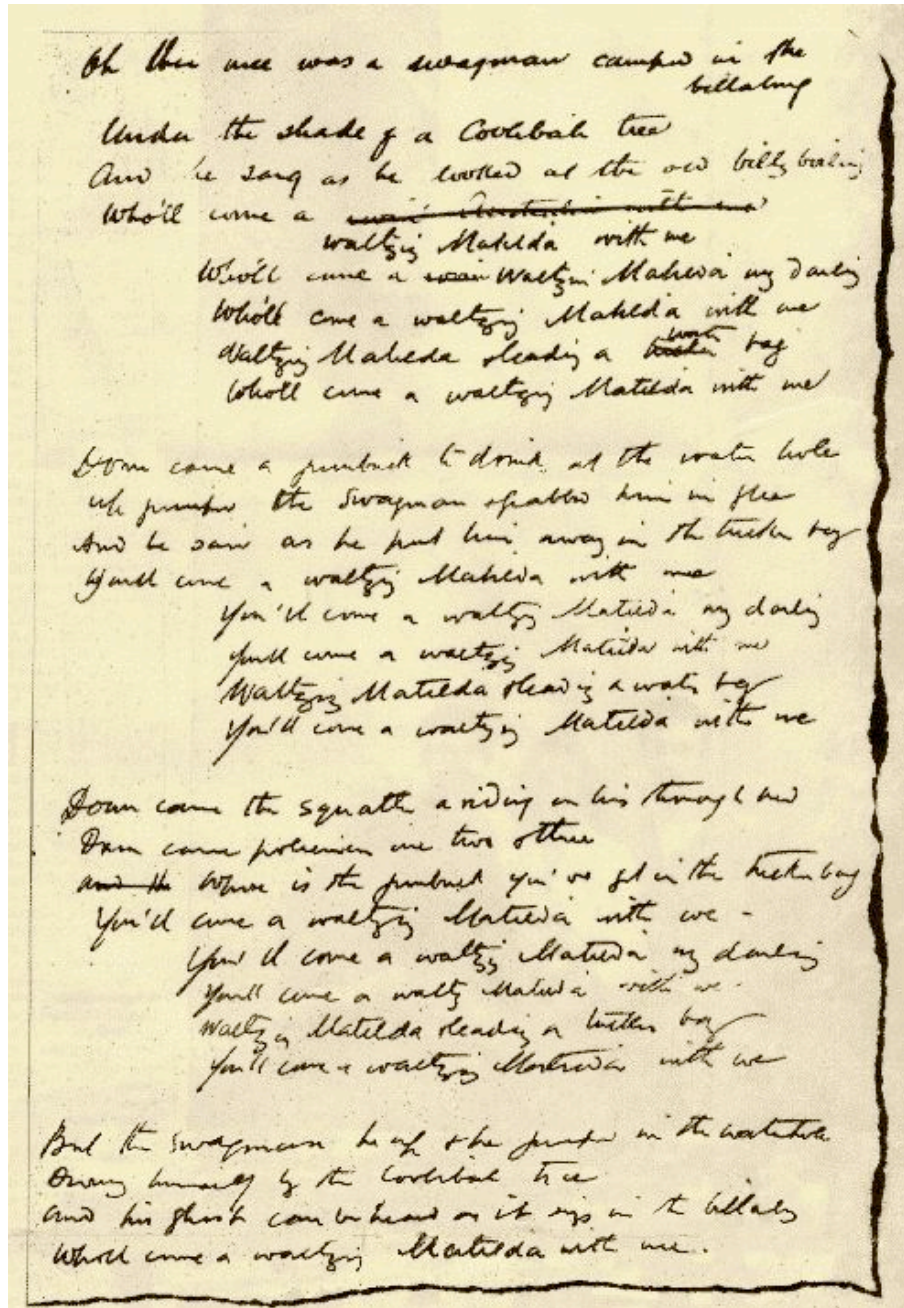 Oh there once was a swagman camped in the
billabong
Under the shade of a Coolibah tree
And he sang as he looked at the old billy boiling
Who'll come a
waltzing Matilda with me
Who'll come a waltzing Matilda my darling
Who'll come a waltzing Matilda with me
Waltzing Matilda leading a water bag
Who'll come a waltzing Matilda with me
Down came a jumbuck to drink at the water hole
Up jumped the swagman & grabbed him in glee
And he said as he put him away in the tucker bag
You'll come a waltzing Matilda with me
You'll come a waltzing Matilda my darling
You'll come a waltzing Matilda with me
Waltzing Matilda leading a water bag
You'll come a waltzing Matilda with me
Down came the squatter a riding on his thoroughbred
Down came policemen one two & three
Where is the jumbuck you've got in the tucker bag
You'll come a waltzing Matilda with me -
You'll come a waltzing Matilda my darling
You'll come a waltzing Matilda with me -
Waltzing Matilda leading a tucker bag
You'll come a waltzing Matilda with me
But the swagman he up & he jumped in the waterhole
Drowning himself by the Coolibah tree
and his ghost can be heard as it sings in the billabong
Who'll come a waltzing Matilda with me.